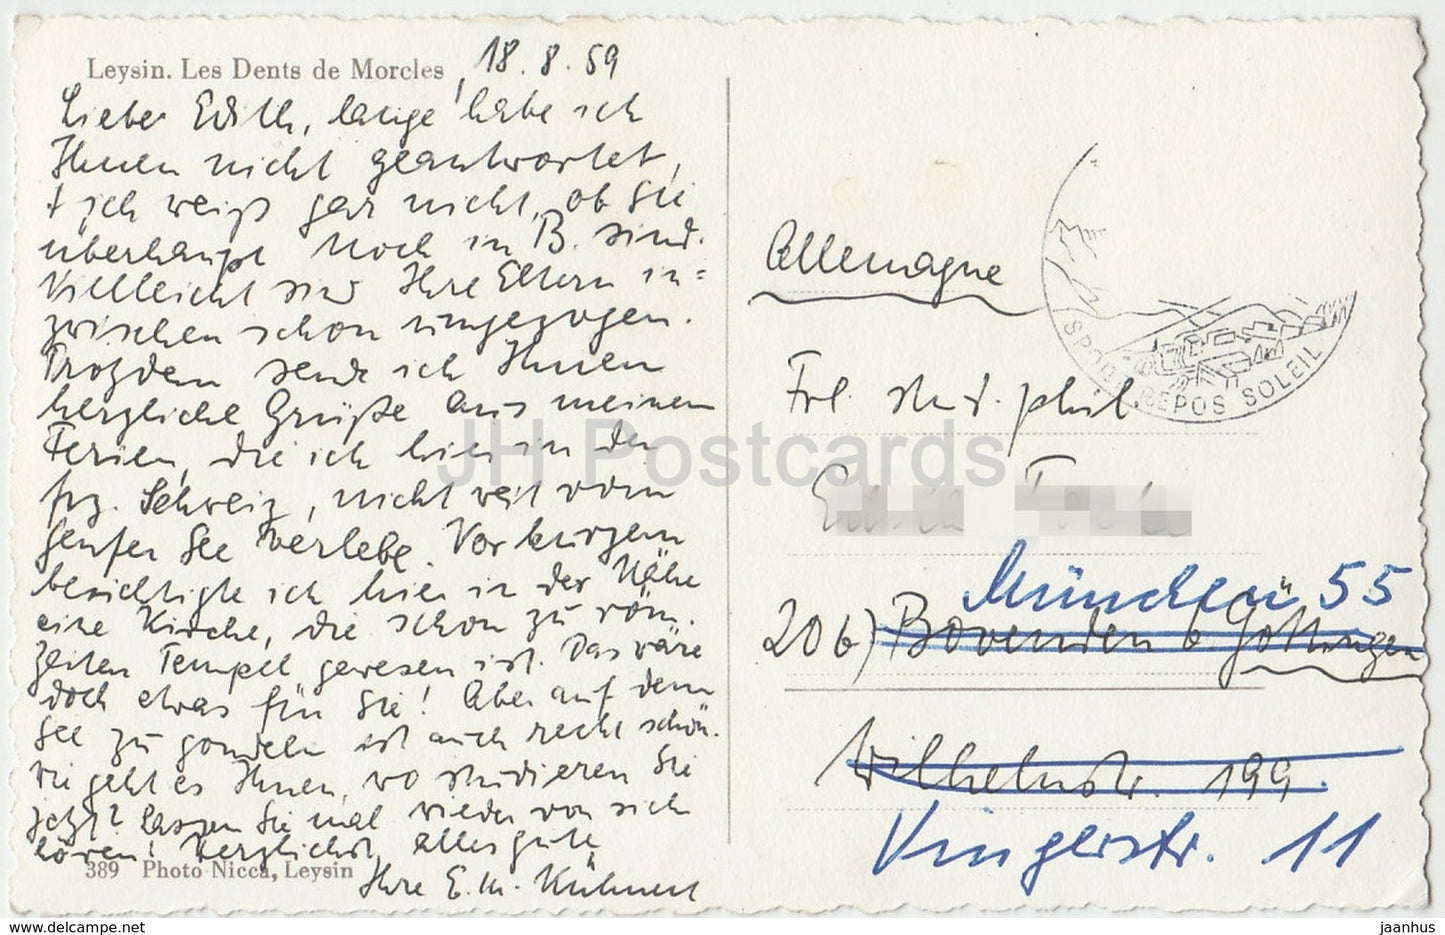 Leysin. Les Dents de Morcles
18.8.59
Liebe Edith, lange habe ich
Ihnen nicht geantwortet,
+ ich weiß gar nicht, ob Sie
überhaupt noch in B. sind.
Vielleicht sind Ihre Eltern in=
zwischen schon umgezogen.
Trozdem sende ich Ihnen
herzliche Grüße aus meinen
Ferien, die ich hier in der
frz. Schweiz, nicht weit vom
Genfer See verlebe. Vor kurzem
besichtigte ich hier in der Nähe
eine Kirche, die schon zu röm.
Zeiten Tempel gewesen ist. Das wäre
doch etwas für Sie! Aber auf dem
See zu gondeln ist auch recht schön.
Wie geht es Ihnen, wo studieren Sie
jetzt? Lassen Sie mal wieder von sich
hören! Herzlichst, alles gute
Ihre E. M. Kühnert
389 Photo Nicca, Leysin
Allemagne
SPORT REPOS SOLEIL
Frl. stud. phil
München 55
20b) Bovenden b. Göttingen
Wilhelmstr. 199.
Vingerstr. 11
JH Postcards
www.delcampe.net
jaanhus